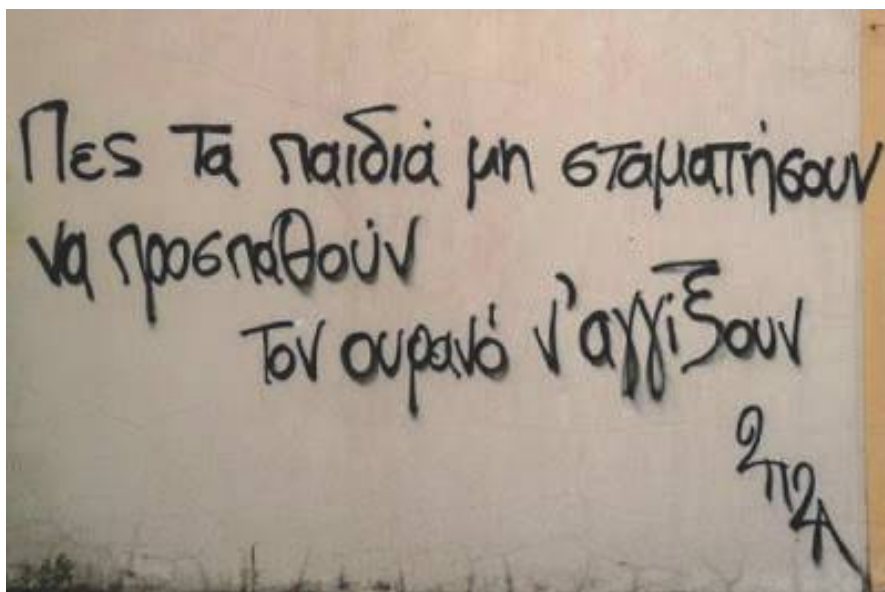 Πες τα παιδιά μη σταματήσουν
να προσπαθούν
τον ουρανό ν' αγγίξουν